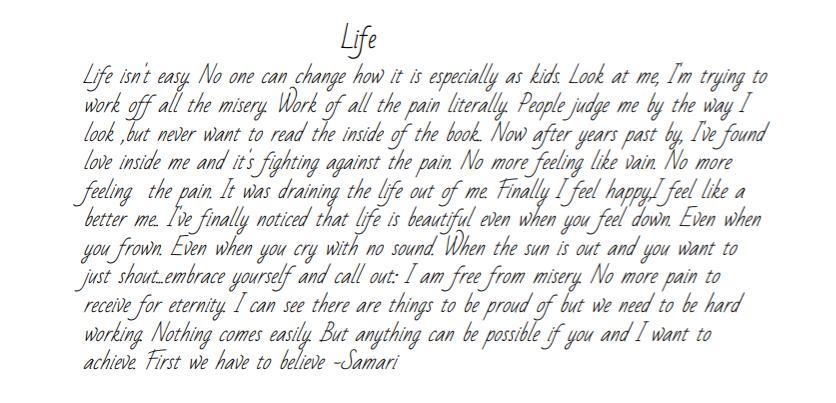 Life
Life isn't easy. No one can change how it is especially as kids. Look at me, I'm trying to
work off all the misery. Work of all the pain literally. People judge me by the way I
look ,but never want to read the inside of the book.. Now after years past by, I've found
love inside me and it's fighting against the pain. No more feeling like vain. No more
feeling the pain. It was draining the life out of me. Finally I feel happy,I feel like a
better me. I've finally noticed that life is beautiful even when you feel down. Even when
you frown. Even when you cry with no sound. When the sun is out and you want to
just shout...embrace yourself and call out: I am free from misery. No more pain to
receive for eternity. I can see there are things to be proud of but we need to be hard
working. Nothing comes easily. But anything can be possible if you and I want to
achieve. First we have to believe -Samari